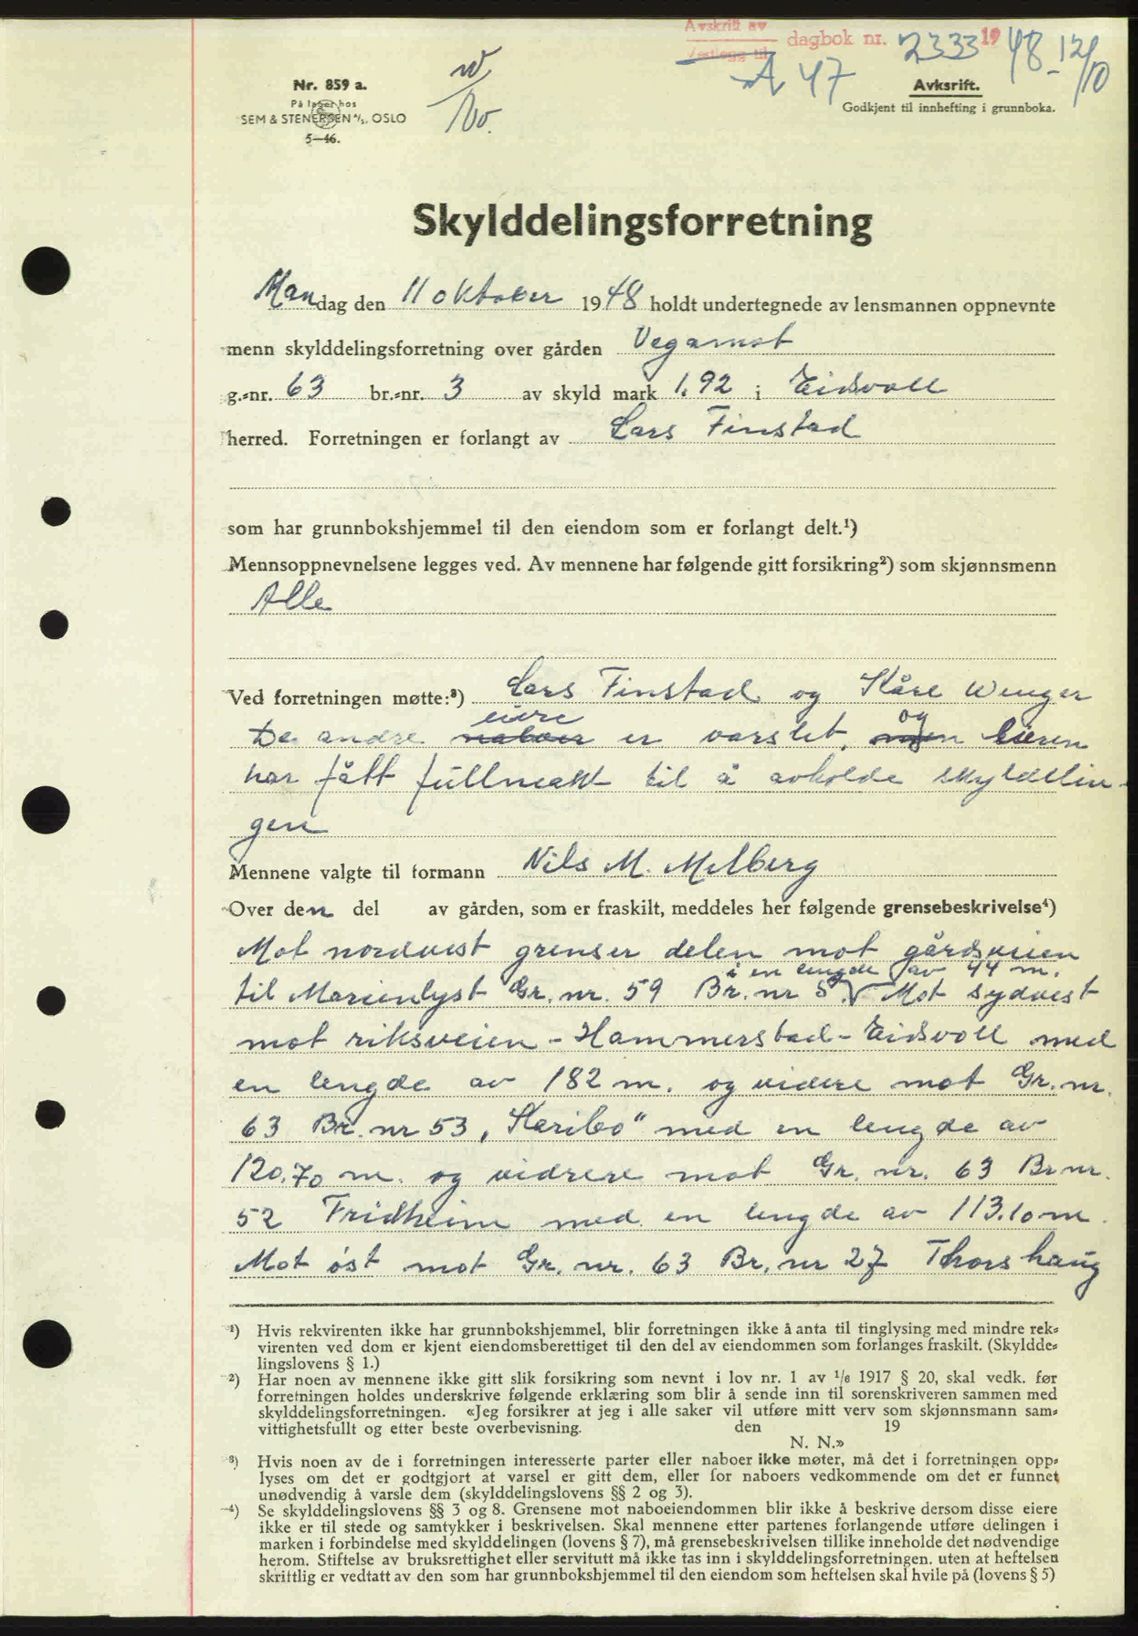 Avskrift av
Vedlegg til
dagbok nr. 2333 1948 - 12/10
A 47
Nr. 859 a.
På lager hos
SEM & STENERSEN A/S, OSLO
5—46.
Avksrift.
Godkjent til innhefting i grunnboka.
Skylddelingsforretning
Mandag den 11 oktober 1948 holdt undertegnede av lensmannen oppnevnte
menn skylddelingsforretning over gården Vegarnst
g.-nr. 63 br.-nr. 3 av skyld mark 1.92 i Eidsvoll
herred. Forretningen er forlangt av Lars Finstad
som har grunnbokshjemmel til den eiendom som er forlangt delt.¹)
Mennsoppnevnelsene legges ved. Av mennene har følgende gitt forsikring²) som skjønnsmenn
Alle
Ved forretningen møtte:³) Lars Finstad og Kåre Wenger
De andre eiere er varslet, og
har fått fullmakt til å avholde skylddelin-
gen
Mennene valgte til formann Nils M. Melberg
Over den del av gården, som er fraskilt, meddeles her følgende grensebeskrivelse⁴)
Mot nordvest grenser delen mot gårdsveien
til Marienlyst Gr. nr. 59 Br. nr 5 i en lengde av 44 m. Mot sydvest
mot riksveien - Hammerstad - Eidsvoll med
en lengde av 182 m. og videre mot Gr. nr.
63 Br. nr 53 „Karibo" med en lengde av
120,70 m. og vidrere mot Gr. nr. 63 Br nr.
52 Fridheim med en lengde av 113.10 m.
Mot øst mot Gr. nr. 63 Br. nr 27 Thorshaug
¹) Hvis rekvirenten ikke har grunnbokshjemmel, blir forretningen ikke å anta til tinglysing med mindre rek-
virenten ved dom er kjent eiendomsberettiget til den del av eiendommen som forlanges fraskilt. (Skyldde-
lingslovens § 1.)
²) Har noen av mennene ikke gitt slik forsikring som nevnt i lov nr. 1 av 1/6 1917 § 20, skal vedk. før
forretningen holdes underskrive følgende erklæring som blir å sende inn til sorenskriveren sammen med
skylddelingsforretningen. «Jeg forsikrer at jeg i alle saker vil utføre mitt verv som skjønnsmann sam-
vittighetsfullt og etter beste overbevisning. den 19
N. N.»
³) Hvis noen av de i forretningen interesserte parter eller naboer ikke møter, må det i forretningen opp-
lyses om det er godtgjort at varsel er gitt dem, eller for naboers vedkommende om det er funnet
unødvendig å varsle dem (skylddelingslovens §§ 2 og 3).
⁴) Se skylddelingslovens §§ 3 og 8. Grensene mot naboeiendommen blir ikke å beskrive dersom disse eiere
ikke er til stede og samtykker i beskrivelsen. Skal mennene etter partenes forlangende utføre delingen i
marken i forbindelse med skylddelingen (lovens § 7), må grensebeskrivelsen tillike inneholde det nødvendige
herom. Stiftelse av bruksrettighet eller servitutt må ikke tas inn i skylddelingsforretningen, uten at heftelsen
skriftlig er vedtatt av den som har grunnbokshjemmel til den eiendom som heftelsen skal hvile på (lovens § 5)